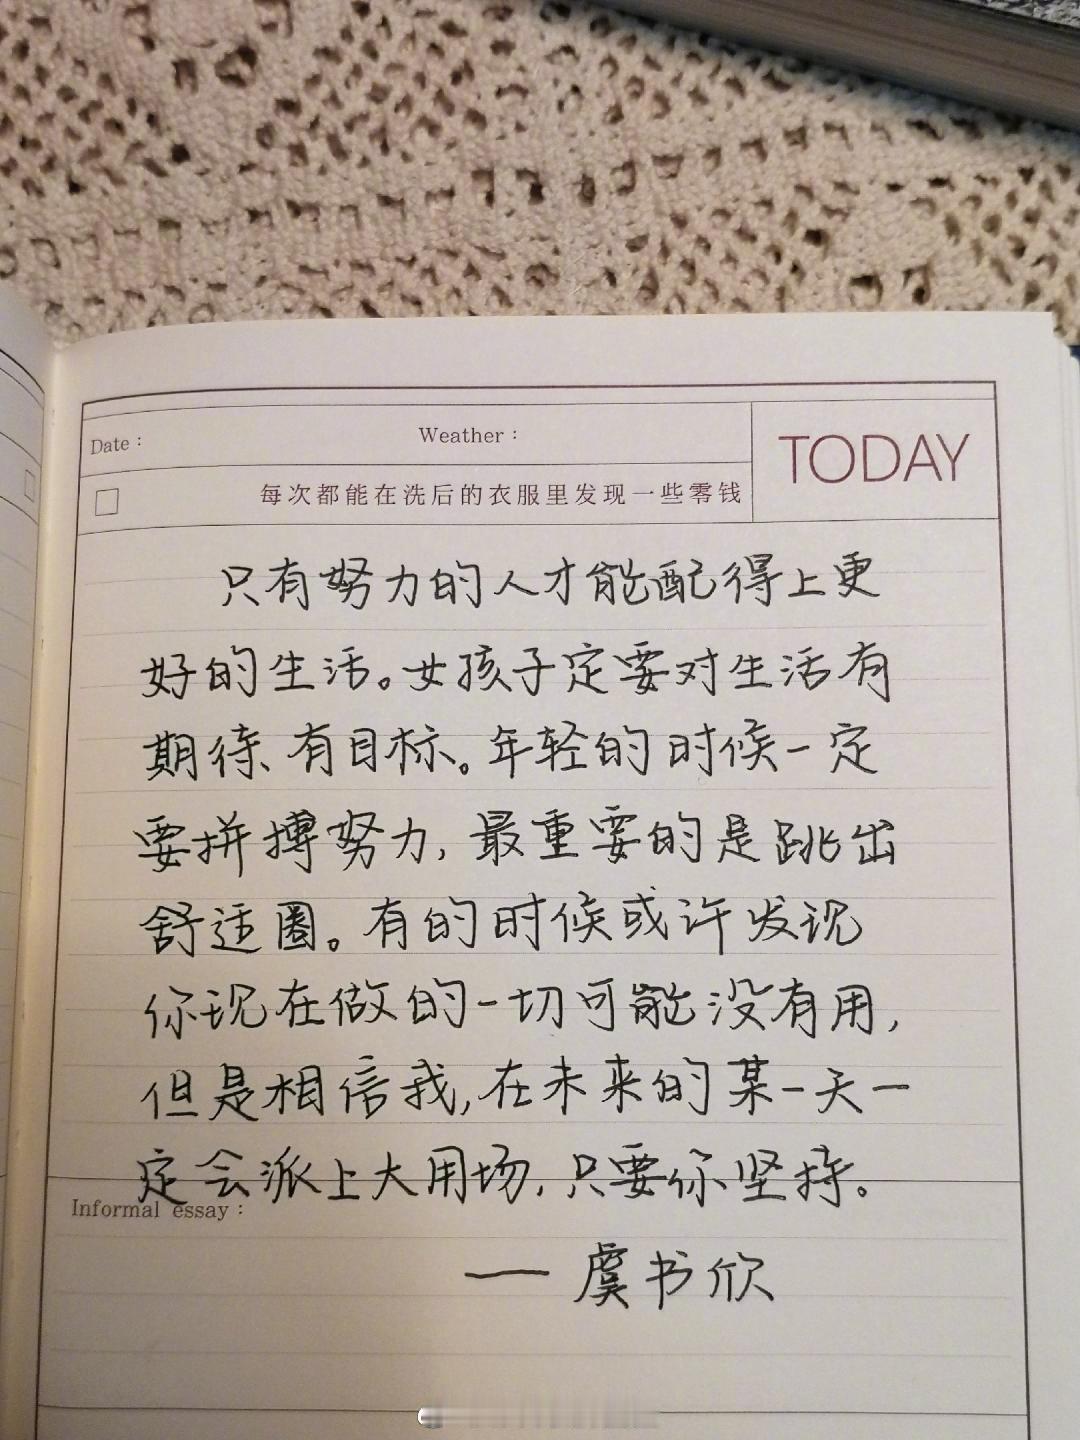 Date：
Weather：
TODAY
每次都能在洗后的衣服里发现一些零钱
只有努力的人才能配得上更
好的生活。女孩子定要对生活有
期待、有目标。年轻的时候一定
要拼搏努力,最重要的是跳出
舒适圈。有的时候或许发现
你现在做的一切可能没有用,
但是相信我,在未来的某一天一
定会派上大用场,只要你坚持。
Informal essay：
——虞书欣